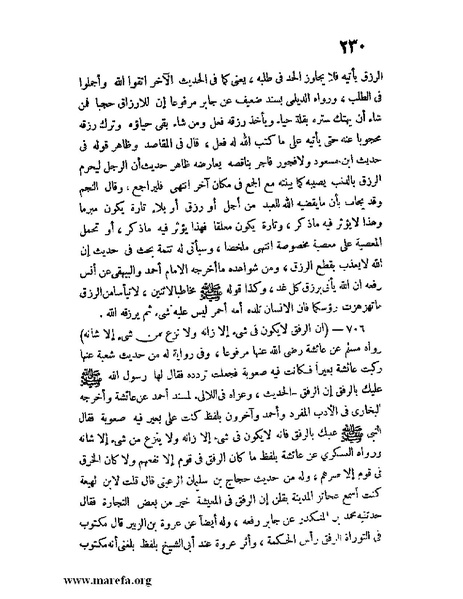 ٢٣٠
الرزق يأتيه فلا يجاوز الحد فى طلبه ، يعنى كما فى الحديث الآخر اتقوا الله وأجملوا
فى الطلب ، ورواه الديلمى بسند ضعيف عن جابر مرفوعا إن للارزاق حجبا فمن
شاء أن يهتك ستره بقلة حياء ويأخذ رزقه فعل ومن شاء بقى حياؤه وترك رزقه
محجوبا عنه حتى يأتيه على ما كتب الله له فعل ، قال فى المقاصد وظاهر قوله فى
حديث ابن مسعود ولافجور فاجر بناقصه يعارضه ظاهر حديث أن الرجل ليحرم
الرزق بالذنب يصيبه كما بينته مع الجمع فى مكان آخر انتهى فليراجع ، وقال النجم
وقد يجاب بأن مايقضيه الله للعبد من أجل أو رزق أو بلاء تارة يكون مبرما
وهذا لايؤثر فيه ماذكر ، وتارة يكون معلقا فهذا يؤثر فيه ماذكر ، أو تحمل
المعصية على معصية مخصوصة انتهى ملخصا ، وسيأتى له تتمة بحث فى حديث إن
الله لايعذب بقطع الرزق ، ومن شواهده ماأخرجه الامام أحمد والبيهقى عن أنس
رفعه ان الله يأتى برزق كل غد ، وكذا قوله ﷺ مخاطبا لاثنين ، لاتيأسا من الرزق
ماتهزهزت رؤسكما فان الانسان تلده أمه أحمر ليس عليه شىء ثم يرزقه الله .
٧٠٦ — ( ان الرفق لايكون فى شىء إلا زانه ولا نزع من شىء إلا شانه )
رواه مسلم عن عائشة رضى الله عنها مرفوعا ، وفى رواية له من حديث شعبة عنها
ركبت عائشة بعيراً فكانت فيه صعوبة فجعلت تردده فقال لها رسول الله ﷺ
عليك بالرفق إن الرفق - الحديث ، وعزاه فى اللآلى لمسند أحمد عن عائشة وأخرجه
البخارى فى الأدب المفرد وأحمد وآخرون بلفظ كنت على بعير فيه صعوبة فقال
النبى ﷺ عليك بالرفق فانه لايكون فى شىء إلا زانه ولا ينزع من شىء إلا شانه
ورواه العسكرى عن عائشة بلفظ ما كان الرفق فى قوم إلا نفعهم ولا كان الخرق
فى قوم إلا ضرهم ، وله من حديث حجاج بن سليمان الرعينى قال قلت لابن لهيعة
كنت أسمع عجائز المدينة يقلن إن الرفق فى المعيشة خير من بعض التجارة فقال
حدثنيه محمد بن المنكدر عن جابر رفعه ، وله أيضاً عن عروة بن الزبير قال مكتوب
فى التوراة الرفق رأس الحكمة ، وأثر عروة عند أبى الشيخ بلفظ بلغنى أنه مكتوب
www.marefa.org